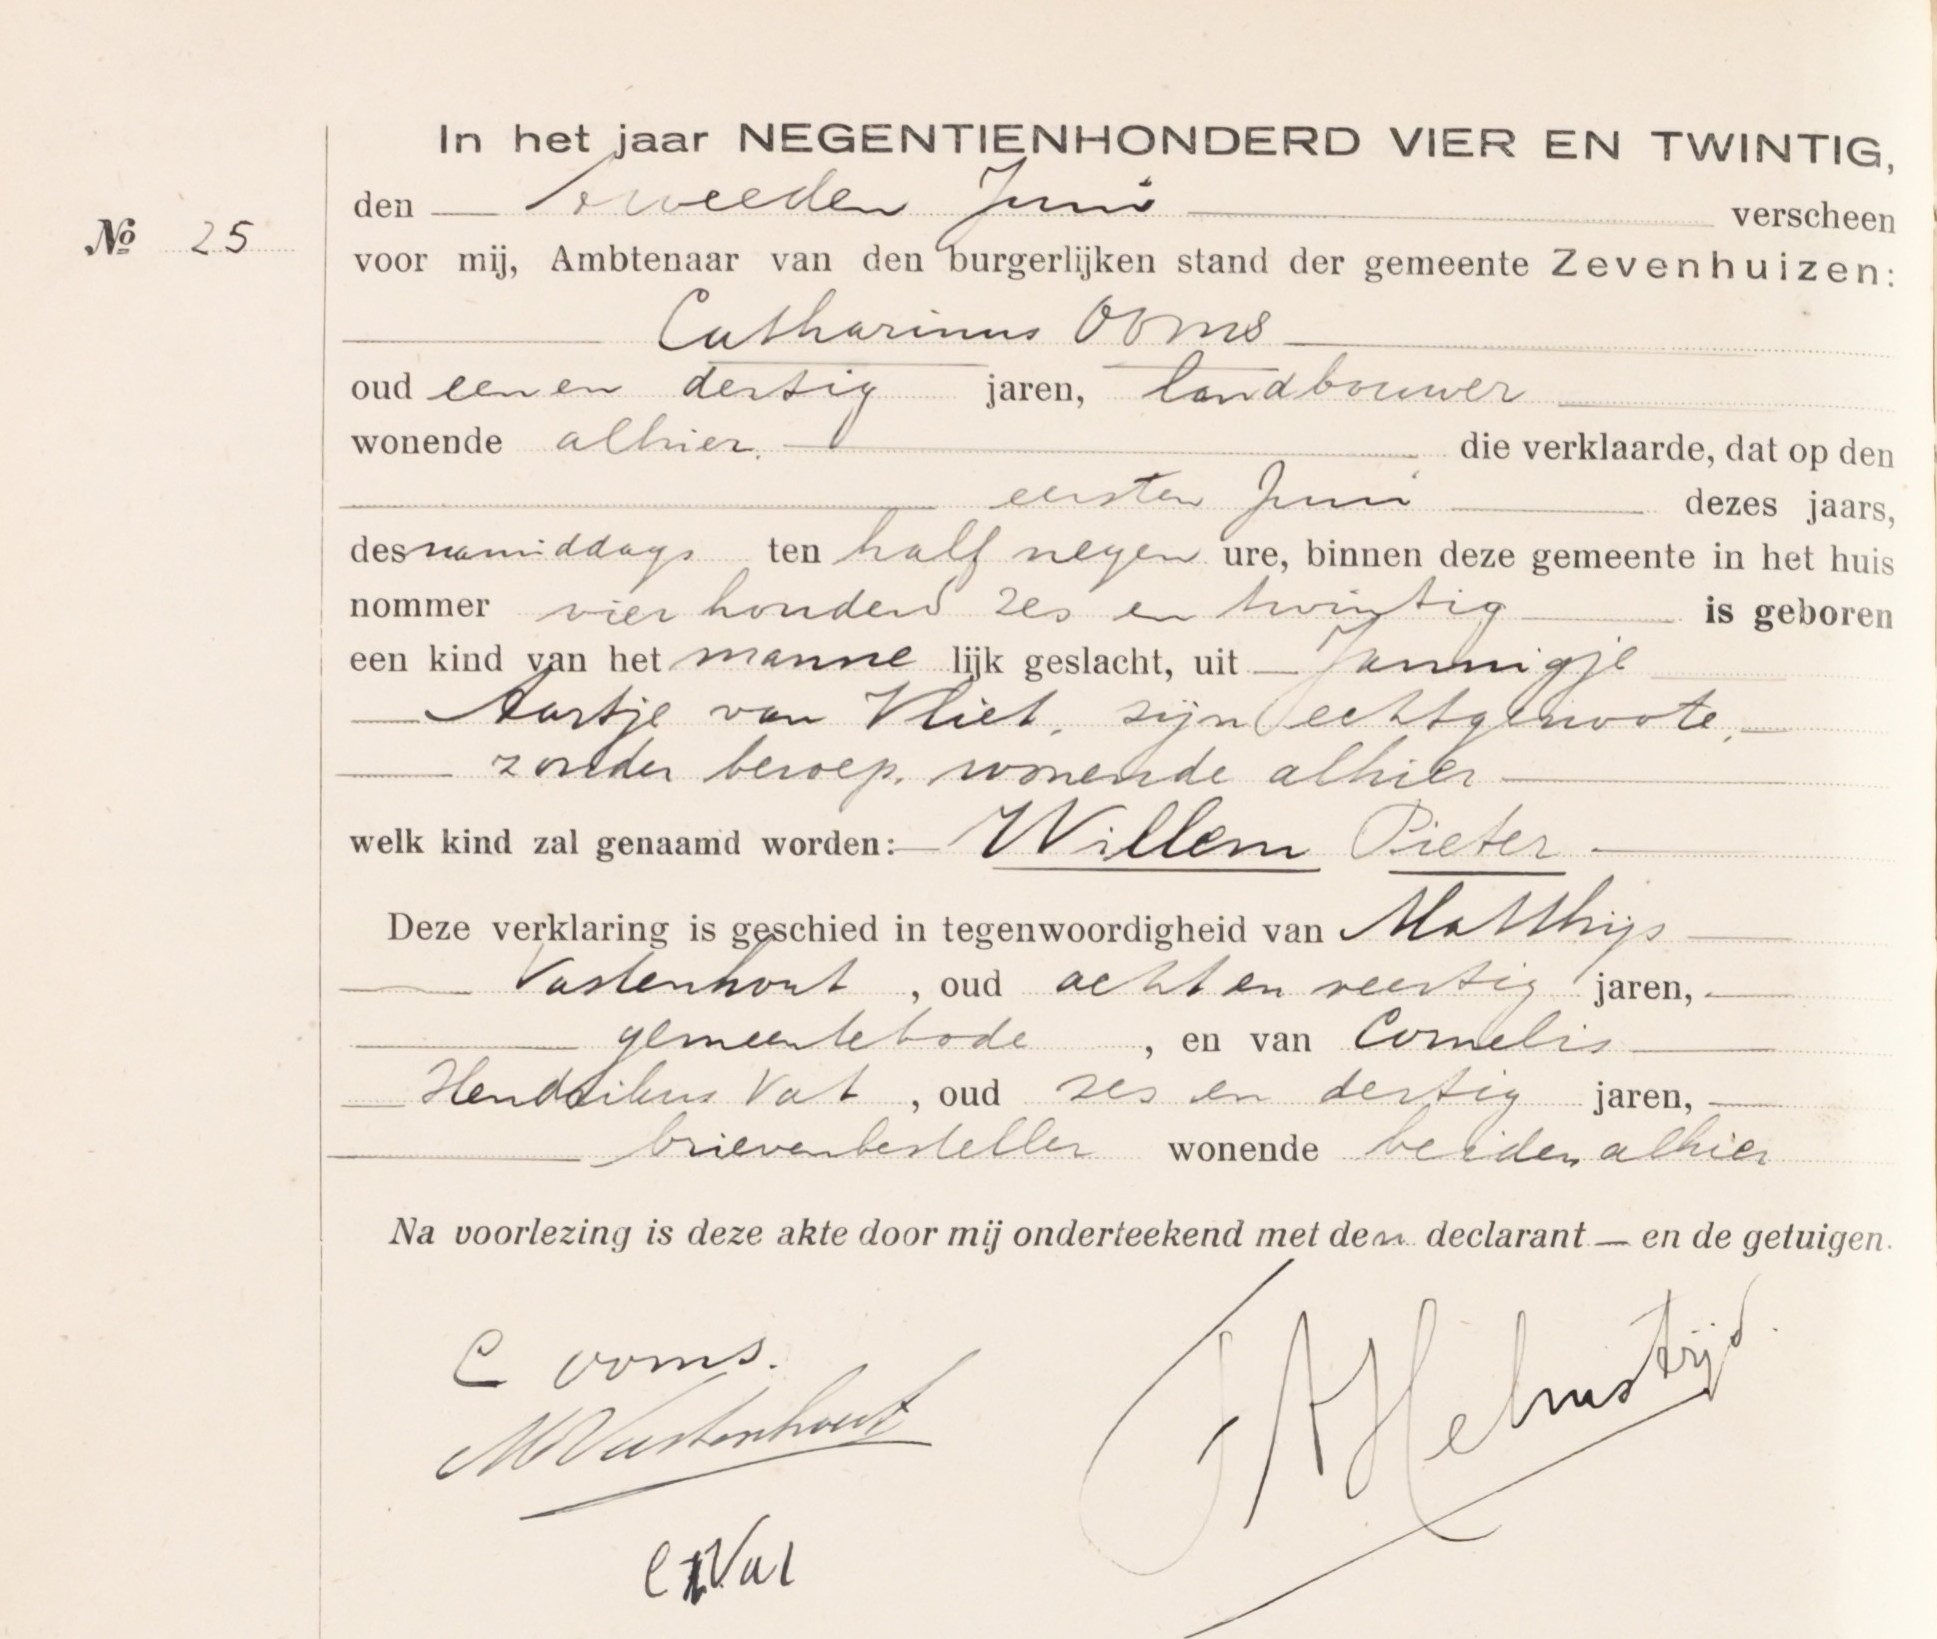 In het jaar NEGENTIENHONDERD VIER EN TWINTIG,
den tweeden Juni verscheen
No 25
voor mij, Ambtenaar van den burgerlijken stand der gemeente Zevenhuizen:
Catharinus Ooms
oud een en dertig jaren, landbouwer
wonende alhier. die verklaarde, dat op den
eersten Juni dezes jaars,
des namiddags ten half negen ure, binnen deze gemeente in het huis
nommer vier honderd zes en twintig is geboren
een kind van het mannelijk geslacht, uit Jannigje
Aartje van Vliet, zijn echtgenoote,
zonder beroep, wonende alhier
welk kind zal genaamd worden: Willem Pieter
Deze verklaring is geschied in tegenwoordigheid van Matthijs
Vastenhout, oud acht en veertig jaren,
gemeentebode, en van Cornelis
Hendrikus Vat, oud zes en dertig jaren,
brievenbesteller wonende beiden alhier
Na voorlezing is deze akte door mij onderteekend met den declarant — en de getuigen.
C Ooms.
M Vastenhout
C H Vat